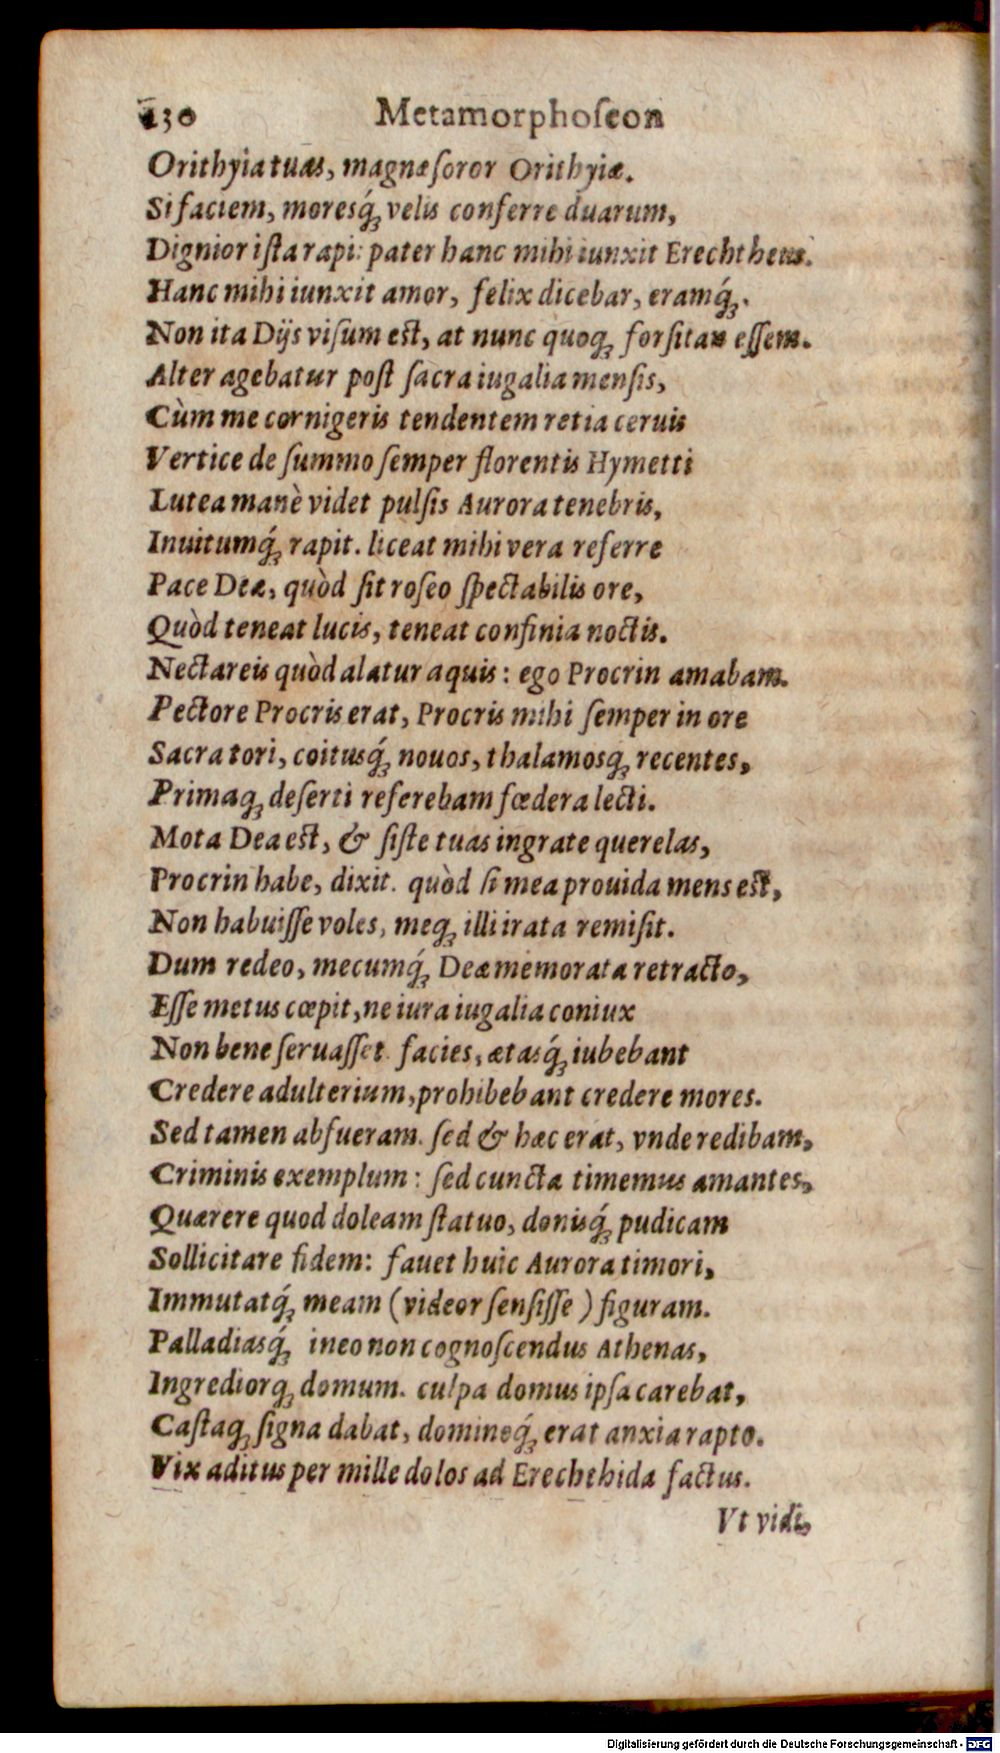 230 Metamorphoſeon
Orithyia tuas, magnæ ſoror Orithyiæ.
Si faciem, moresq́ꝫ velis conferre duarum,
Dignior iſta rapi: pater hanc mihi iunxit Erechtheus.
Hanc mihi iunxit amor, felix dicebar, eramq́ꝫ.
Non ita Dijs viſum eſt, at nunc quoqꝫ forſitan eſſem.
Alter agebatur poſt ſacra iugalia menſis,
Cùm me cornigeris tendentem retia ceruis
Vertice de ſummo ſemper florentis Hymetti
Lutea manè videt pulſis Aurora tenebris,
Inuitumq́ꝫ rapit. liceat mihi vera referre
Pace Deæ, quòd ſit roſeo ſpectabilis ore,
Quòd teneat lucis, teneat confinia noctis.
Nectareis quòd alatur aquis: ego Procrin amabam.
Pectore Procris erat, Procris mihi ſemper in ore
Sacra tori, coitusq́ꝫ nouos, thalamosqꝫ recentes,
Primaqꝫ deſerti referebam fœdera lecti.
Mota Dea eſt, & ſiſte tuas ingrate querelas,
Procrin habe, dixit. quòd ſi mea prouida mens eſt,
Non habuiſſe voles, meqꝫ illi irata remiſit.
Dum redeo, mecumq́ꝫ Deæ memorata retracto,
Eſſe metus cœpit, ne iura iugalia coniux
Non bene ſeruaſſet. facies, ætasq́ꝫ iubebant
Credere adulterium, prohibebant credere mores.
Sed tamen abfueram. ſed & hæc erat, vnde redibam,
Criminis exemplum: ſed cuncta timemus amantes,
Quærere quod doleam ſtatuo, donisq́ꝫ pudicam
Sollicitare fidem: fauet huic Aurora timori,
Immutatq́ꝫ meam (videor ſenſiſſe) figuram.
Palladiasq́ꝫ ineo non cognoſcendus Athenas,
Ingrediorqꝫ domum. culpa domus ipſa carebat,
Caſtaqꝫ ſigna dabat, domineq́ꝫ erat anxia rapto.
Vix aditus per mille dolos ad Erechthida factus.
Vt vidi,
Digitalisierung gefördert durch die Deutsche Forschungsgemeinschaft - DFG